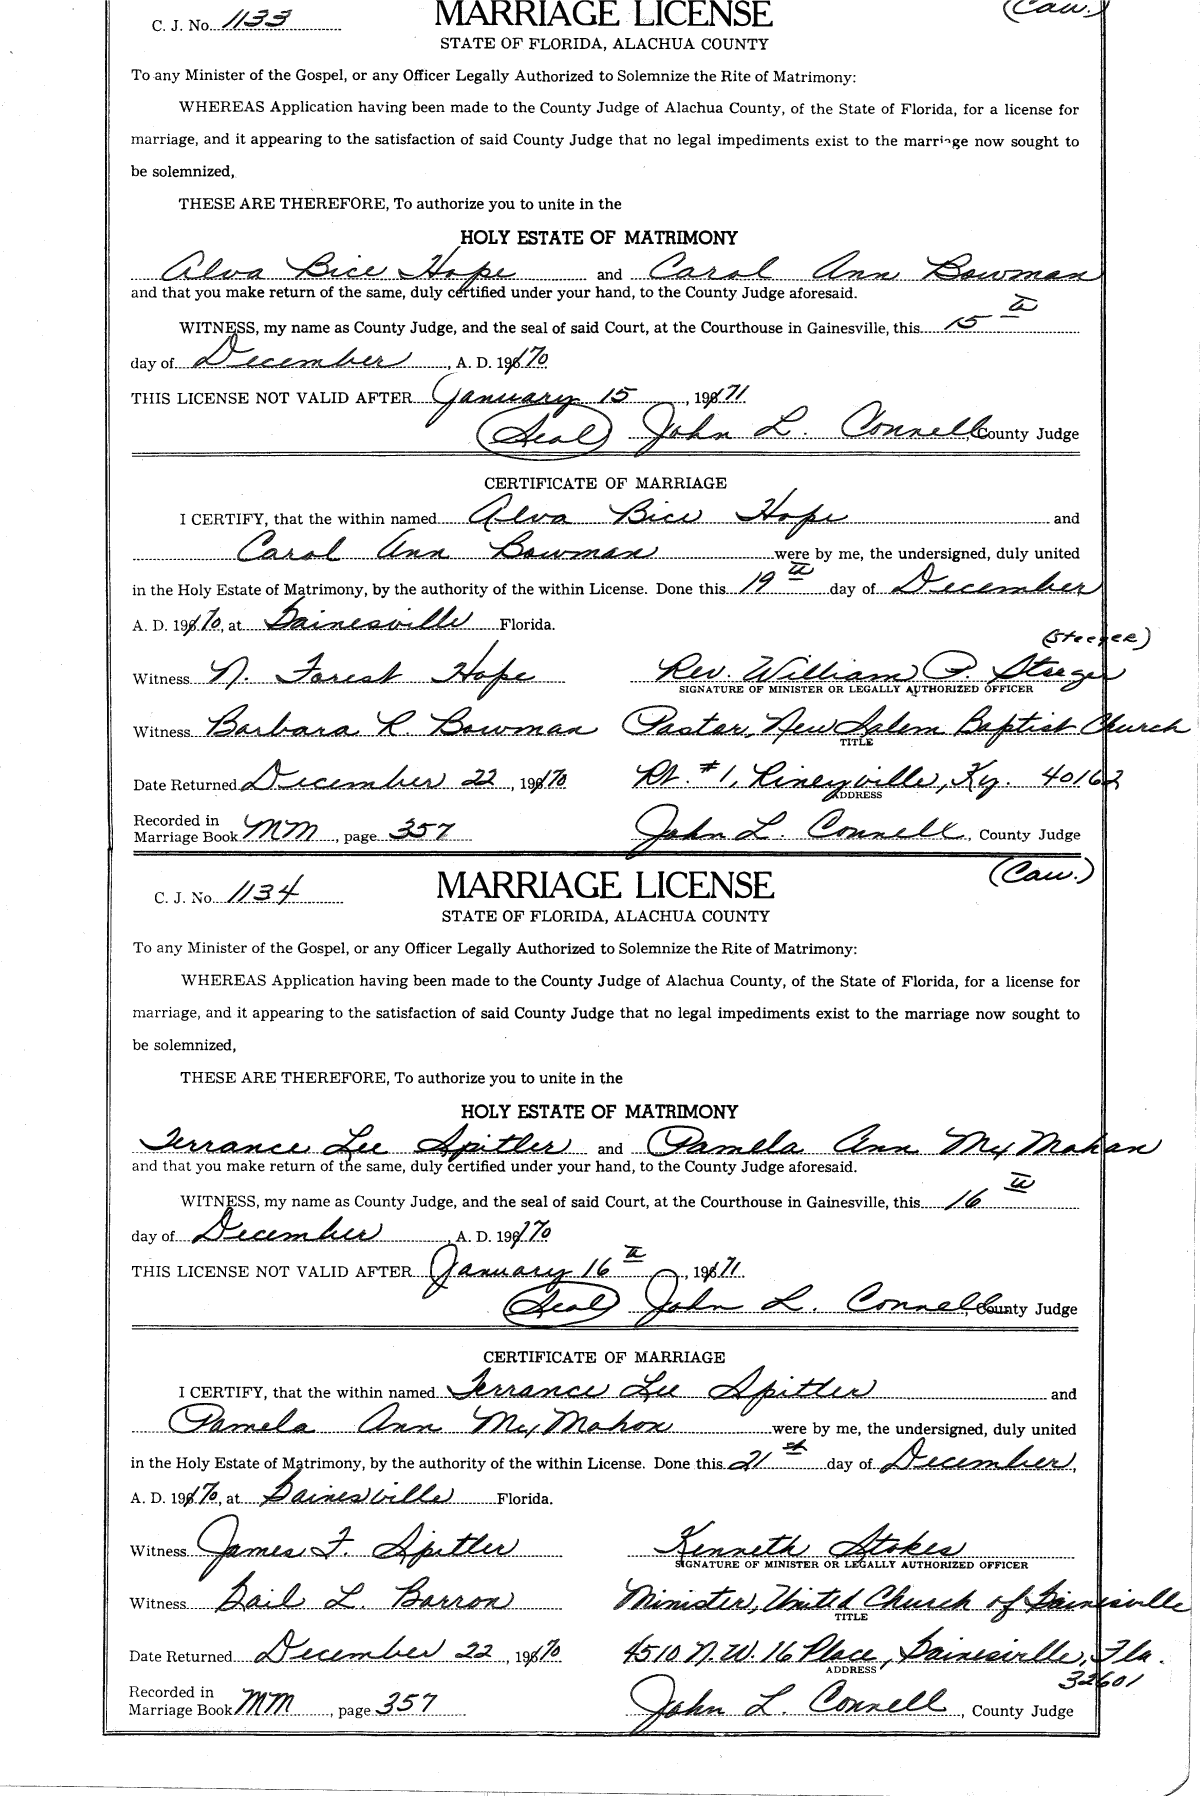 C. J. No. 1133 MARRIAGE LICENSE (Caw.)
STATE OF FLORIDA, ALACHUA COUNTY
To any Minister of the Gospel, or any Officer Legally Authorized to Solemnize the Rite of Matrimony:
WHEREAS Application having been made to the County Judge of Alachua County, of the State of Florida, for a license for
marriage, and it appearing to the satisfaction of said County Judge that no legal impediments exist to the marriage now sought to
be solemnized,
THESE ARE THEREFORE, To authorize you to unite in the
HOLY ESTATE OF MATRIMONY
Alva Bice Hope and Carol Ann Bowman
and that you make return of the same, duly certified under your hand, to the County Judge aforesaid.
WITNESS, my name as County Judge, and the seal of said Court, at the Courthouse in Gainesville, this 15th
day of December, A. D. 1970
THIS LICENSE NOT VALID AFTER January 15, 1971.
(Seal) John L. Connell County Judge
CERTIFICATE OF MARRIAGE
I CERTIFY, that the within named Alva Bice Hope and
Carol Ann Bowman were by me, the undersigned, duly united
in the Holy Estate of Matrimony, by the authority of the within License. Done this 19th day of December
A. D. 1970, at Gainesville Florida.
(Steeger)
Witness N. Forest Hope Rev. William P. Steeger
SIGNATURE OF MINISTER OR LEGALLY AUTHORIZED OFFICER
Witness Barbara R. Bowman Pastor, New Salem Baptist Church
TITLE
Date Returned December 22, 1970 Rt. #1, Rineyville, Ky. 40162
ADDRESS
Recorded in
Marriage Book MM, page 357 John L. Connell, County Judge
C. J. No. 1134 MARRIAGE LICENSE (Caw.)
STATE OF FLORIDA, ALACHUA COUNTY
To any Minister of the Gospel, or any Officer Legally Authorized to Solemnize the Rite of Matrimony:
WHEREAS Application having been made to the County Judge of Alachua County, of the State of Florida, for a license for
marriage, and it appearing to the satisfaction of said County Judge that no legal impediments exist to the marriage now sought to
be solemnized,
THESE ARE THEREFORE, To authorize you to unite in the
HOLY ESTATE OF MATRIMONY
Terrance Lee Spitler and Pamela Ann McMahan
and that you make return of the same, duly certified under your hand, to the County Judge aforesaid.
WITNESS, my name as County Judge, and the seal of said Court, at the Courthouse in Gainesville, this 16th
day of December, A. D. 1970
THIS LICENSE NOT VALID AFTER January 16th, 1971.
(Seal) John L. Connell, County Judge
CERTIFICATE OF MARRIAGE
I CERTIFY, that the within named Terrance Lee Spitler and
Pamela Ann McMahon were by me, the undersigned, duly united
in the Holy Estate of Matrimony, by the authority of the within License. Done this 21st day of December,
A. D. 1970, at Gainesville Florida.
Witness James F. Spitler Kenneth Stokes
SIGNATURE OF MINISTER OR LEGALLY AUTHORIZED OFFICER
Witness Gail L. Barron Minister, United Church of Gainesville
TITLE
Date Returned December 22, 1970 4510 N.W. 16 Place, Gainesville, Fla.
ADDRESS 32601
Recorded in
Marriage Book MM, page 357 John L. Connell, County Judge